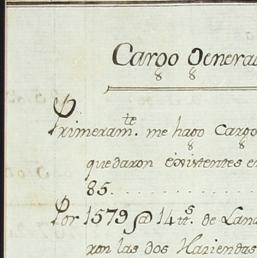 Cargo General
Primeram.te me hago Cargo
quedaron existentes en
85.
Por 1579 @ 14 ts. de Lana
ron las dos Haziendas